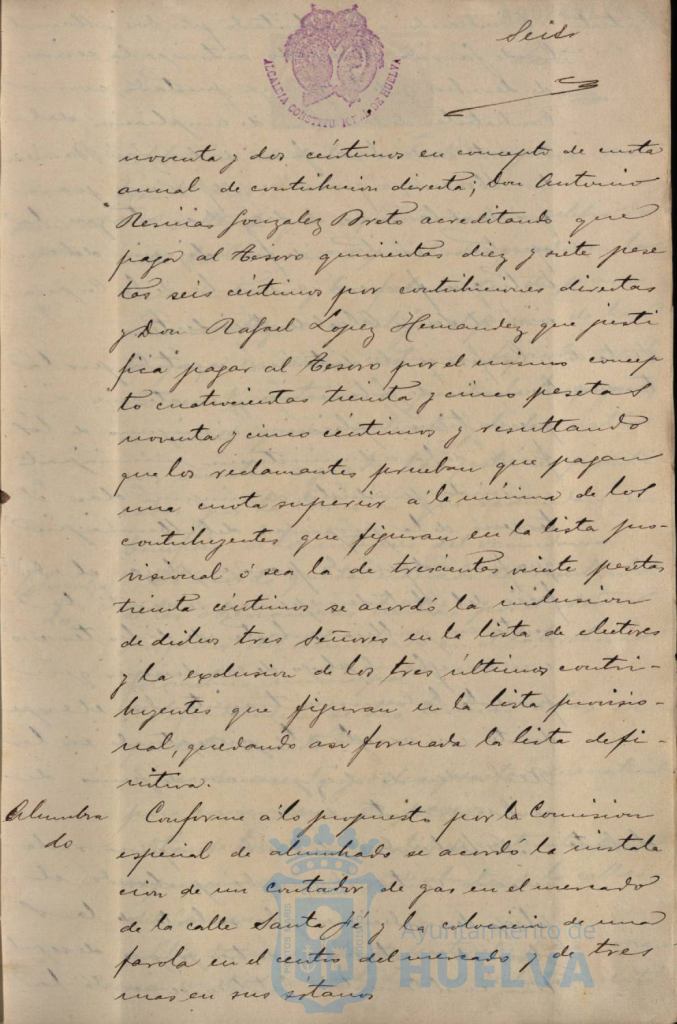 Seis
ALCALDIA CONSTITUCIONAL DE HUELVA
noventa y dos céntimos en concepto de cuota
anual de contribucion directa; Don Antonio
González Preto acreditando que
paga al Tesoro quinientas diez y siete pese
tas seis céntimos por contribuciones directas
y Don Rafael Lopez Hernandez que justi
fica pagar al Tesoro por el mismo concep
to cuatrocientas treinta y cinco pesetas
noventa y cinco céntimos y resultando
que los reclamantes prueban que pagan
una cuota superior á la mínima de los
contribuyentes que figuran en la lista pro-
visional ó sea la de trescientas veinte pesetas
treinta céntimos se acordó la inclusion
de dichos tres Señores en la lista de electores
y la exclusion de los tres últimos contri-
buyentes que figuran en la lista provisio-
nal, quedando así formada la lista defi-
nitiva.
Alumbra
do
Conforme á lo propuesto por la Comision
especial de alumbrado se acordó la instala
cion de un contador de gas en el mercado
de la calle Santa Fé y la colocacion de una
farola en el centro del mercado y de tres
mas en sus sotanos
Ayuntamiento de
HUELVA